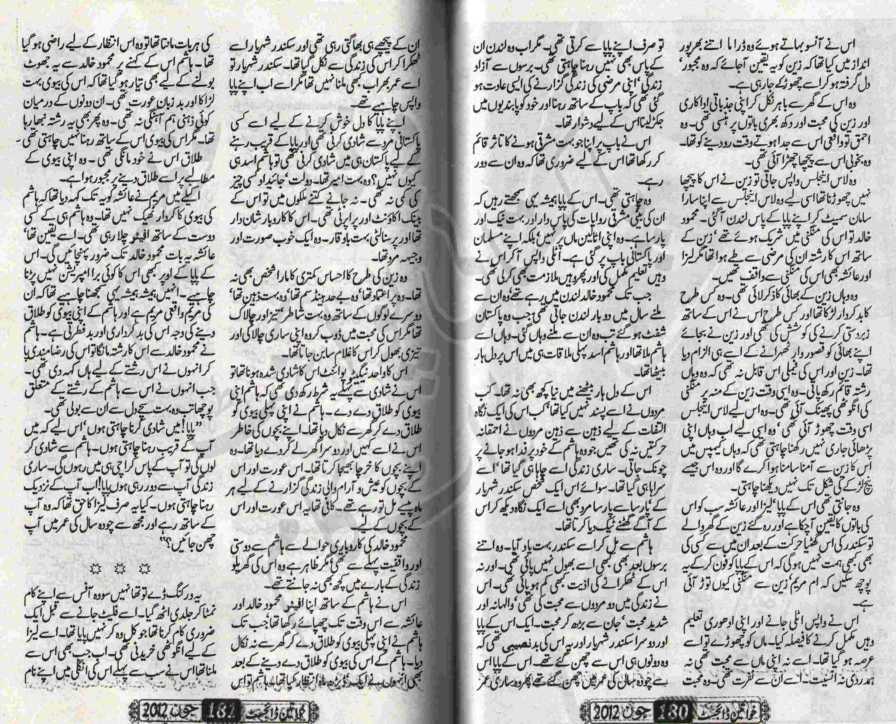 اس نے آنسو بہاتے ہوئے وہ ڈراما اتنے بھرپور
انداز میں کیا تھا کہ زین کو یہ یقین آجائے کہ وہ مجبور،
دل گرفتہ ہو کر اسے چھوڑ کے جا رہی ہے۔
وہ اس کے گھر سے باہر نکل کر اپنی جذباتی اداکاری
اور زین کی محبت اور دکھ بھری باتوں پر ہنسی تھی۔ وہ
احمق تو واقعی اس سے جدا ہوتے وقت رو دینے کو تھا۔
وہ بخوبی اس سے پیچھا چھڑا آئی تھی۔
وہ لاس اینجلس واپس جاتی تو زین نے اس کا پیچھا
نہیں چھوڑنا تھا اس لیے وہ لاس اینجلس سے اپنا سارا
سامان سمیٹ کر اپنے پاپا کے پاس لندن آگئی۔ محمود
خالد تو اس کی منگنی میں شریک ہوئے تھے ’زین کے
ساتھ اس کا رشتہ ان کی مرضی سے طے ہوا تھا مگر لیزا
اور عائشہ بھی اس کی منگنی سے واقف تھیں۔
وہ وہاں زین کے بھائی کا ذکر لائی تھی۔ وہ کس طرح
کا بدکردار لڑکا تھا اور کس طرح اس نے اس کے ساتھ
زبردستی کرنے کی کوشش کی تھی اور زین نے بجائے
اپنے بھائی کو قصور وار ٹھہرانے کے اسے ہی الزام دیا
تھا۔ زین اور اس کی فیملی اس قابل نہ تھی کہ وہ وہاں
رشتہ قائم رکھ پاتی۔ وہ اسی وقت زین کے منہ پر منگنی
کی انگوٹھی پھینک آئی تھی۔ وہ اس لیے لاس اینجلس
اسی وقت چھوڑ آئی تھی‘ وہ اسی لیے اب وہاں اپنی
پڑھائی جاری نہیں رکھنا چاہتی تھی کہ وہاں کیمپس میں
اس کا زین سے آمنا سامنا ہوا کرے گا اور وہ اس جیسے
نیچ لڑکے کی شکل تک نہیں دیکھنا چاہتی۔
وہ جانتی تھی اس کے پاپا‘ لیزا اور عائشہ سب کو اس
کی باتوں کا یقین آچکا ہے اور رہ گئے زین کے گھر والے
تو سکندر کی اس گھٹیا حرکت کے بعد ان میں سے کسی کی
بھی کبھی ہمت نہیں ہوگی کہ اس کے پاپا کو فون کرکے یہ
پوچھ سکیں کہ ام مریم زین سے منگنی کیوں توڑ آئی
ہے۔
اس نے واپس اٹلی جانے اور اپنی ادھوری تعلیم
وہیں مکمل کرنے کا فیصلہ کیا۔ ماں کو چھوڑے تو اسے
عرصہ ہو گیا تھا۔ اسے نہ اپنی ماں سے محبت تھی نہ
ہمدردی نہ انسیت۔ اسے ان سے نفرت تھی۔ وہ محبت
تو صرف اپنے پاپا سے کرتی تھی۔ مگر اب وہ لندن ان
کے پاس بھی نہیں رہنا چاہتی تھی۔ برسوں سے آزاد
زندگی‘ اپنی مرضی کی زندگی گزارنے کی ایسی عادت ہو
گئی تھی کہ باپ کے ساتھ رہنا اور خود کو پابندیوں میں
جکڑ لینا اس کے لیے دشوار تھا۔
اس نے باپ پر اپنا جو بہت مشرقی ہونے کا تاثر قائم
کر رکھا تھا اس کے لیے ضروری تھا کہ وہ ان سے دور
رہے۔
وہ چاہتی تھی۔ اس کے پاپا ہمیشہ یہی سمجھتے رہیں کہ
ان کی بیٹی مشرقی روایات کی پاس دار اور بہت نیک اور
پارسا ہے۔ وہ اپنی اٹالین ماں پر نہیں‘ بلکہ اپنے مسلمان
اور پاکستانی باپ پر گئی ہے۔ اٹلی واپس آ کر اس نے
اپنی تعلیم مکمل کی اور پھر وہیں ملازمت بھی کرلی تھی۔
جب تک محمود خالد لندن میں رہے تھے وہ ان سے
ملنے سال میں دو بار لندن جاتی تھی جب وہ پاکستان
شفٹ ہو گئے تب وہ ان سے ملنے وہاں گئی۔ وہاں اسے
ہاشم ملا تھا اور ہاشم اسد پہلی ملاقات ہی میں اس پر دل ہار
بیٹھا تھا۔
اس کے دل ہار بیٹھنے میں نیا کچھ بھی نہ تھا۔ کب
مردوں نے اسے پسند نہیں کیا تھا‘ کب اس کی ایک نگاہ
التفات کے لیے ذہین سے ذہین مردوں نے احمقانہ
حرکتیں نہ کی تھیں جو وہ ہاشم کے خود پر فدا ہو جانے پر
چونک جاتی۔ ساری زندگی اسے چاہا ہی گیا تھا‘ اسے
سراہا ہی گیا تھا۔ سوائے اس ایک شخص سکندر شہریار
کے‘ پارسا سے پارسا مرد بھی اسے ایک نگاہ دیکھ کر اس
کے آگے گھٹنے ٹیک دیا کرتا تھا۔
ہاشم سے مل کر اسے سکندر بہت یاد آیا۔ وہ اتنے
برسوں بعد بھی کبھی اسے بھول نہیں پائی تھی۔ اور نہ
اس کے ٹھکرانے کی اذیت کبھی کم ہو پائی تھی۔ اس
نے زندگی میں دو مردوں سے محبت کی تھی‘ والہانہ اور
شدید محبت‘ جان سے بڑھ کر محبت۔ ایک اس کے پاپا
اور دوسرا سکندر شہریار اور یہ اس کی بد نصیبی تھی کہ
وہ دونوں ہی اس سے چھن گئے تھے۔ اس کے پاپا اس
سے چودہ سال کی عمر میں چھن گئے تھے پھر وہ ساری عمر
خواتین ڈائجسٹ 180 جون 2012
ان کے پیچھے ہی بھاگتی رہی تھی اور سکندر شہریار اسے
ٹھکرا کر اس کی زندگی سے نکل گیا تھا۔ سکندر شہریار تو
اسے عمر بھر اب کبھی ملنا نہیں تھا مگر اسے اب اپنے پاپا
واپس چاہیے تھے۔
اپنے پاپا کا دل خوش کرنے کے لیے اسے کسی
پاکستانی مرد سے شادی کرنی تھی اور پاپا کے قریب رہنے
کے لیے پاکستان ہی میں شادی کرنی تھی تو ہاشم اسد ہی
کیوں نہیں؟ وہ بہت امیر تھا۔ دولت‘ جائیداد کسی چیز
کی کمی نہ تھی۔ نہ جانے کتنے ملکوں میں تو اس کے
بینک اکاؤنٹ اور پراپرٹی تھی۔ اس کا کاروبار شان دار
تھا اور پرسنالٹی بہت باوقار۔ وہ ایک خوب صورت اور
وجیہہ مرد تھا۔
وہ زین کی طرح کا احساس کمتری کا مارا شخص بھی نہ
تھا۔ وہ پر اعتماد تھا‘ وہ بے حد ہینڈسم تھا‘ وہ بہت ذہین تھا‘
دوسرے لوگوں کے ساتھ وہ بہت شاطر‘ تیز اور چالاک
تھا مگر اس کی محبت میں ڈوب کر وہ اپنی ساری چالاکی اور
تیزی بھول کر اس کا غلام سا بن جاتا تھا۔
اس کا واحد نیگیٹو پوائنٹ اس کا شادی شدہ ہونا تھا تو
اس نے شادی سے پہلے یہ شرط رکھ دی تھی کہ ہاشم اپنی
بیوی کو طلاق دے دے۔ ہاشم نے اپنی پہلی بیوی کو
طلاق دے کر گھر سے نکال دیا تھا۔ اپنے بچوں کی خاطر
اس نے اسے کہیں اور دوسرا گھر لے کر دے دیا تھا۔ وہ
اپنے بچوں کا خرچا بھیجا کرتا تھا۔ اس عورت اور اس
کے بچوں کو عیش و آرام والی زندگی گزارنے کے لیے ہر
ماہ پیسے مل تو رہے تھے۔ کافی تھا یہ اس عورت اور اس
کے بچوں کے لیے۔
محمود خالد کی کاروباری حوالے سے ہاشم سے دوستی
اور واقفیت پہلے سے تھی مگر ظاہر ہے وہ اس کی گھریلو
زندگی کے بارے میں کچھ بھی نہ جانتے تھے۔
اس نے ہاشم کے ساتھ اپنا افیئر محمود خالد اور
عائشہ سے اس وقت تک چھپائے رکھا تھا جب تک
ہاشم نے اپنی پہلی بیوی کو طلاق دے کر گھر سے نہ نکال
دیا۔ ہاشم کے اس کی بیوی کو طلاق دے دینے کے بعد
بھی انہوں نے ایک ڈیڑھ ماہ انتظار کیا تھا۔ ہاشم تو اس
کی ہر بات مانتا تھا تو وہ اس انتظار کے لیے راضی ہو گیا
تھا۔ ہاشم اس کے کہنے پر محمود خالد سے یہ جھوٹ
بولنے کے لیے بھی تیار ہو گیا تھا کہ اس کی بیوی بہت
لڑاکا اور بد زبان عورت تھی۔ ان دونوں کے درمیان
کوئی ذہنی ہم آہنگی نہ تھی۔ وہ پھر بھی یہ رشتہ نبھا رہا
تھا۔ مگر اس کی بیوی اس کے ساتھ رہنا نہیں چاہتی تھی۔
طلاق اس نے خود مانگی تھی۔ وہ اپنی بیوی کے
مطالبے پر اسے طلاق دینے پر مجبور ہوا ہے۔
اکیلے میں مریم نے عائشہ کو یہ تک کہہ دیا تھا کہ ہاشم
کی بیوی کا کردار ٹھیک نہیں تھا۔ وہ ہاشم ہی کے کسی
دوست کے ساتھ افیئر چلا رہی تھی۔ اسے یقین تھا‘
عائشہ یہ بات محمود خالد تک ضرور پہنچائیں گی۔ اس
کے پاپا کے اوپر کبھی اس کا کوئی برا امپریشن نہیں پڑنا
چاہیے۔ انہیں ہمیشہ ہمیشہ یہی سمجھنا چاہیے تھا کہ ان
کی مریم واقعی مریم ہے اور ہاشم کے اپنی بیوی کو طلاق
دینے کی وجہ اس کی بد کرداری اور بد فطرتی ہے۔ ہاشم
نے محمود خالد سے اس کا رشتہ مانگا تو اس کی رضامندی پا
کر انہوں نے اس رشتے کے لیے ہاں کہہ دی تھی۔
جب انہوں نے اس سے ہاشم کے رشتے کے متعلق
پوچھا تب وہ بہت سچے دل سے ان سے بولی تھی۔
”پاپا! میں شادی کرنا چاہتی ہوں‘ اس لیے کہ میں
آپ کے قریب رہنا چاہتی ہوں۔ ہاشم سے شادی کر
لوں گی تو آپ کے پاس کراچی ہی میں رہوں گی۔ ساری
زندگی آپ سے دور رہی ہوں پاپا! اب آپ کے نزدیک
رہنا چاہتی ہوں۔ کیا یہ صرف لیزا کا حق تھا کہ وہ آپ
کے ساتھ رہے اور مجھ سے چودہ سال کی عمر میں آپ
چھن جائیں؟“
☼ ☼ ☼
یہ ورکنگ ڈے تو تھا نہیں سو وہ آفس سے اپنے کام
نمٹا کر جلدی اٹھ گیا۔ اسے فلیٹ جانے سے قبل ایک
ضروری کام کرنا تھا جو کل وہ کر نہیں پایا تھا۔ اسے لیزا
کے لیے انگوٹھی خریدنی تھی۔ اب جب بھی اس سے
ملنا تھا اس نے سب سے پہلے اس کی انگلی میں اپنے نام
خواتین ڈائجسٹ 181 جون 2012